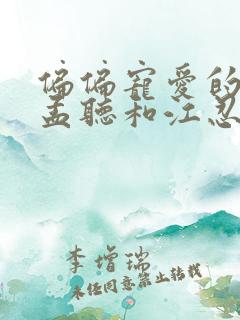 偏偏寵愛的
孟聽和江忍
李增瑞
未經同意禁止转载